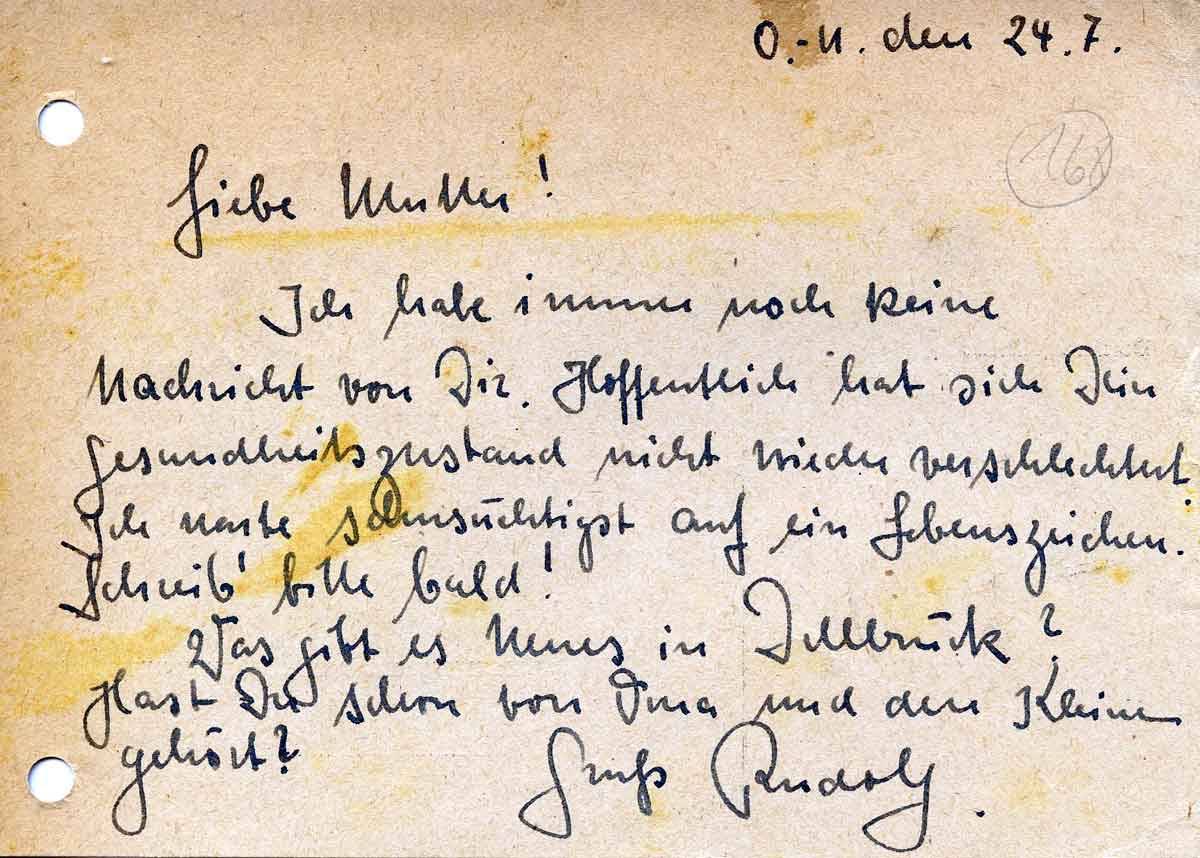 O.-U. den 24.7.
168
Liebe Mutter!
Ich habe immer noch keine
Nachricht von Dir. Hoffentlich hat sich Dein
Gesundheitszustand nicht wieder verschlechtert.
Ich warte sehnsüchtigst auf ein Lebenszeichen.
Schreib' bitte bald!
Was gibt es Neues in
Hast Du schon von Oma und den Kleinen
gehört?
Gruß Rudolf.